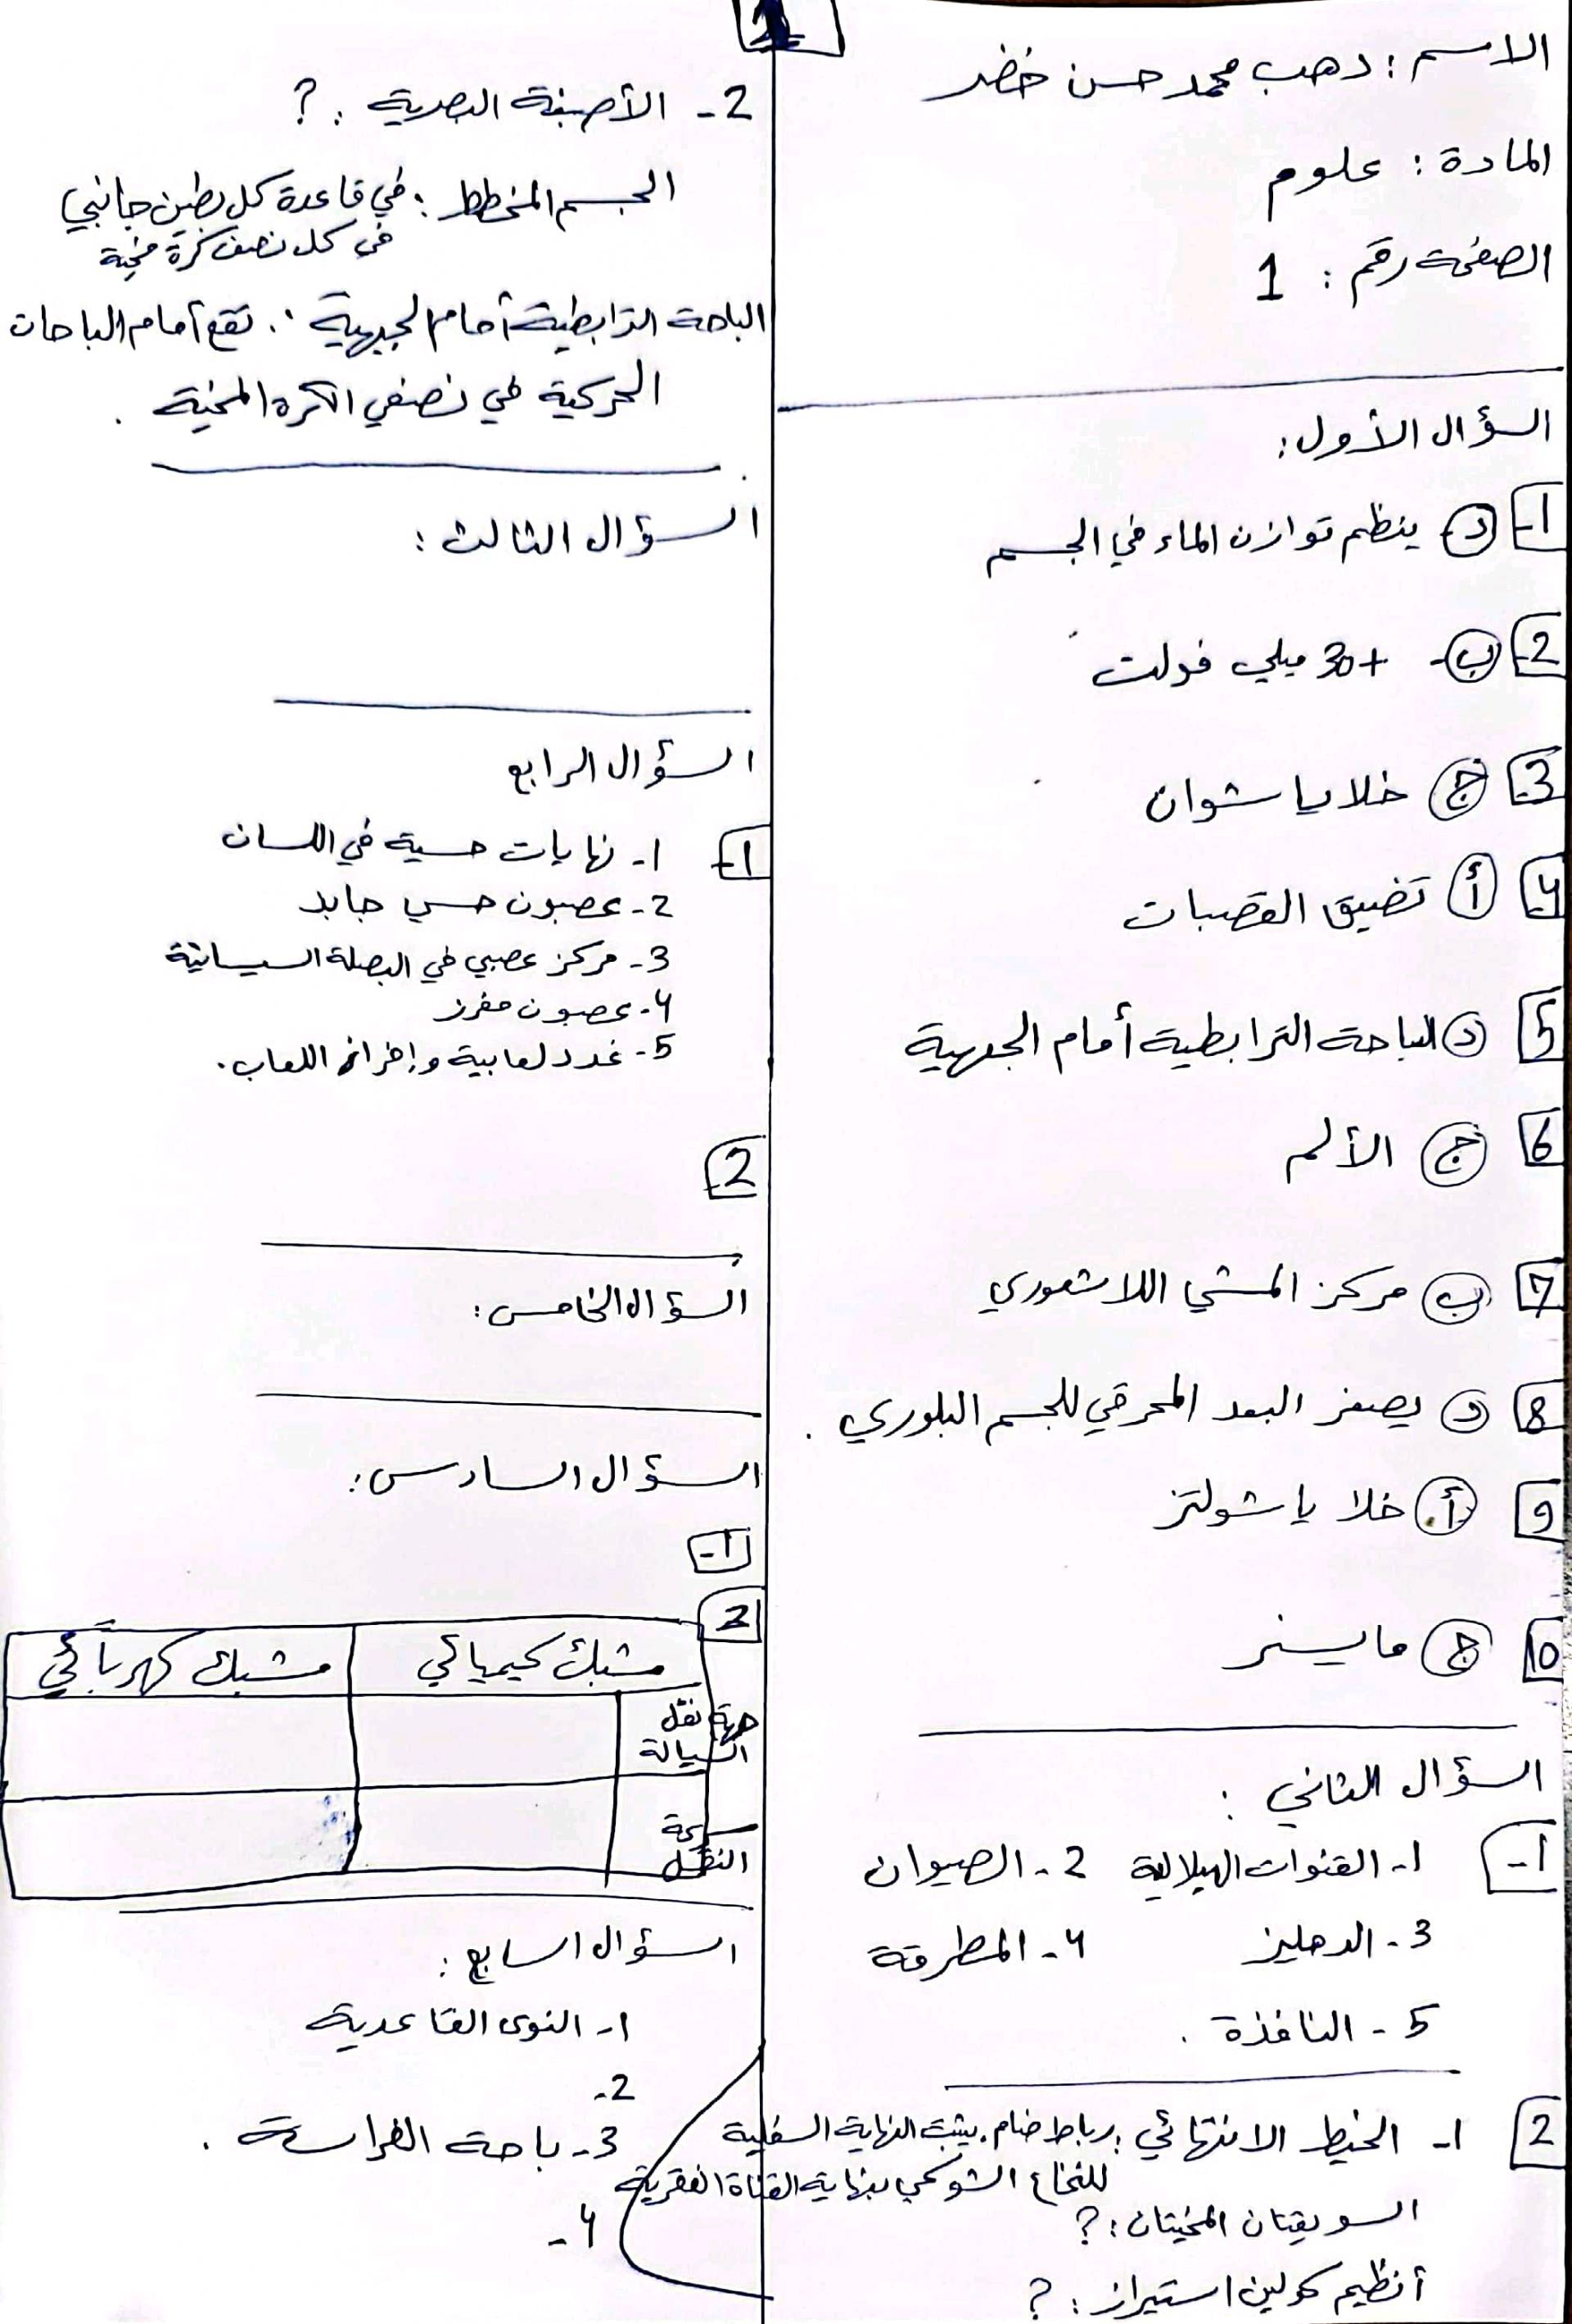 الاسم : دهب محمد حسن خضر
المادة : علوم
الصفحة رقم : 1
السؤال الأول :
1- د- ينظم توازن الماء في الجسم
2- ب- +30 ميلي فولت
3- ج خلايا شوان
4- أ تضيق القصبات
5 د الباحة الترابطية أمام الجبهية
6 ج الألم
7 ب مركز المشي اللاشعوري
8 د يصغر البعد المحرقي للجسم البلوري .
9 أ. خلايا شولتز
10 ج مايسنر
السؤال الثاني :
1- 1- القنوات الهلالية 2- الصيوان
3- الدهليز 4- المطرقة
5- النافذة .
2 1- الخيط الانتهائي : رباط ضام . يثبت النهاية السفلية
للنخاع الشوكي بنهاية القناة الفقرية
السويقتان المخيتان : ?
أنظيم كولين استيراز : ?
2
2- الأصبغة البصرية : ?
الجسم المخطط : في قاعدة كل بطين جانبي
في كل نصف كرة مخية
الباحة الترابطية أمام الجبهية : تقع أمام الباحات
الحركية في نصفي الكرة المخية .
السؤال الثالث :
السؤال الرابع
1- 1- نهايات حسية في اللسان
2- عصبون حسي جابذ
3- مركز عصبي في البصلة السيسائية
4- عصبون مفرز
5- غدد لعابية وإفراز اللعاب .
2
السؤال الخامس :
السؤال السادس :
1-
2
مشبك كيميائي مشبك كهربائي
جهة نقل
السيالة
سرعة
النقل
السؤال السابع :
1- النوى القاعدية
2-
3- باحة الفراسة .
4-